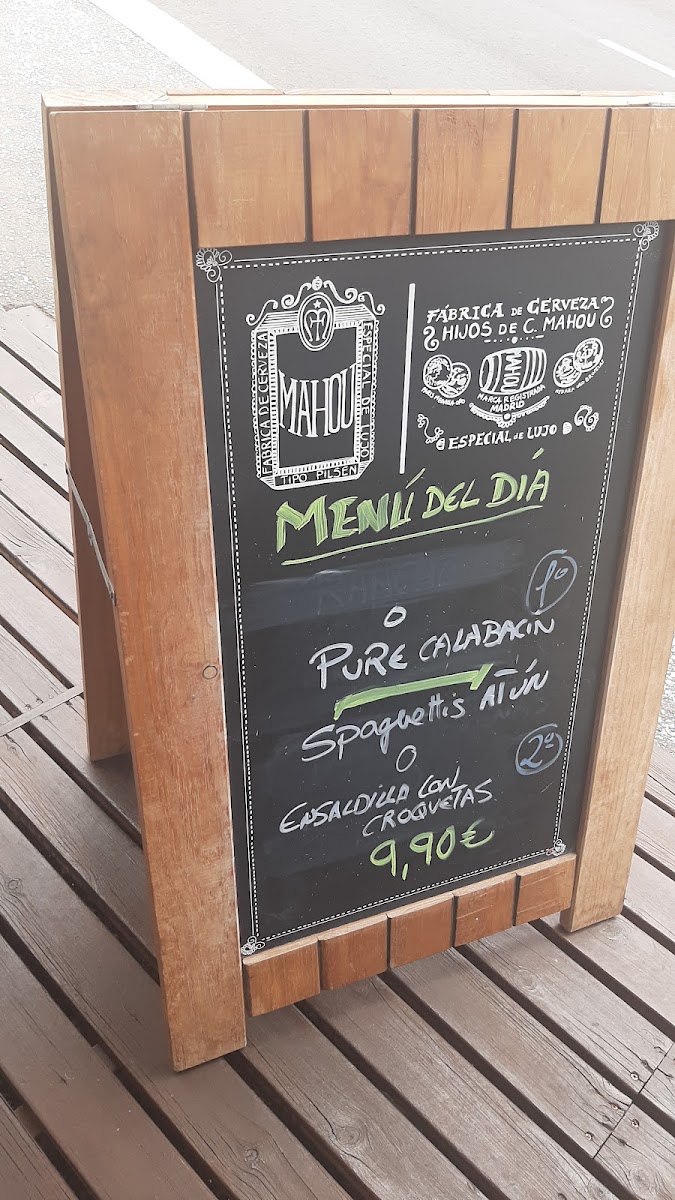 FÁBRICA DE CERVEZA
MAHOU
ESPECIAL DE LUJO
TIPO PILSEN
FÁBRICA DE CERVEZA
HIJOS DE C. MAHOU
MARCA REGISTRADA
MADRID
ESPECIAL DE LUJO
MENÚ DEL DIÁ
1º
O
PURE CALABACIN
SPAGHETTIS ATÚN
2º
O
ENSALDILLA CON
CROQUETAS
9,90€